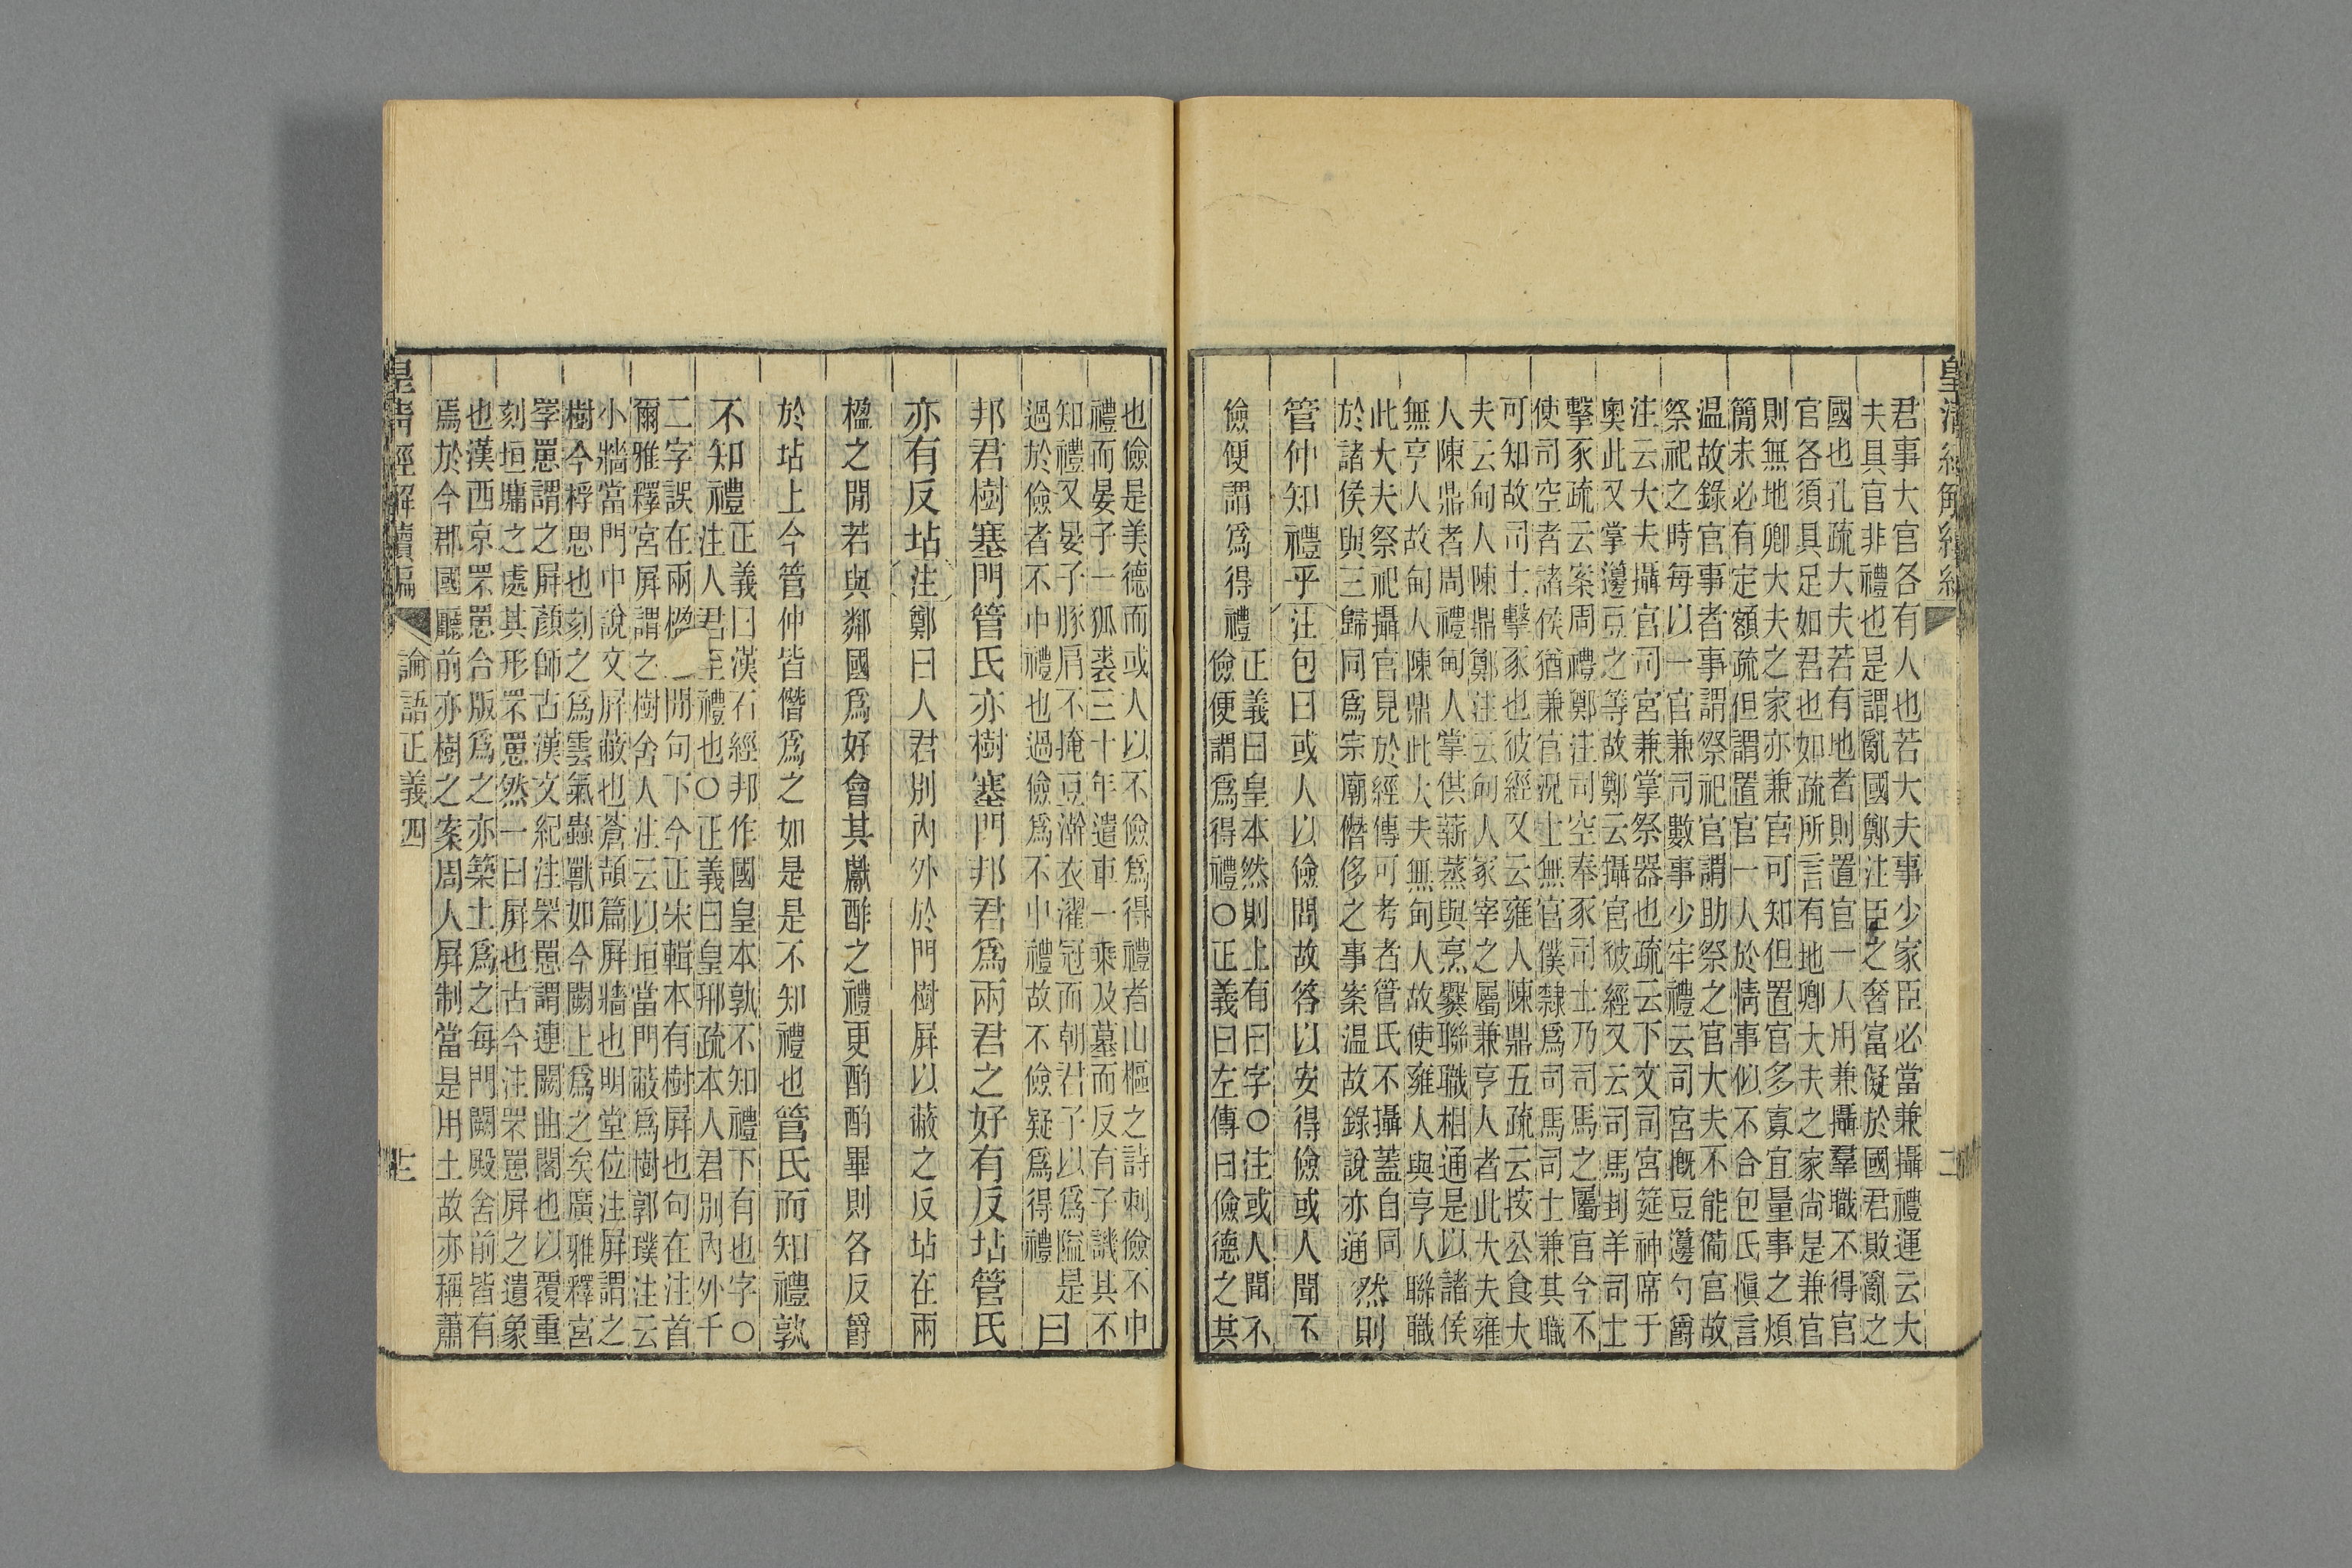 君事大官各有人也若大夫事少家臣必當兼攝禮運云大
夫具官非禮也是謂亂國鄭注臣之奢富儗於國君敗亂之
國也孔疏大夫若有地者則置官一人用兼攝羣職不得官
官各須具足如君也如疏所言有地卿大夫之家尚是兼官
則無地卿大夫之家亦兼官可知但置官多寡宜量事之煩
簡未必有定額疏但謂置官一人於情事似不合包氏愼言
温故錄官事者事謂祭祀官謂助祭之官大夫不能備官故
祭祀之時每以一官兼司數事少牢禮云司宮摡豆籩勺爵
注云大夫攝官司宮兼掌祭器也疏云下文司宮筵神席于
奧此又掌籩豆之等故鄭云攝官彼經又云司馬刲羊司士
擊豕疏云案周禮鄭注司空奉豕司士乃司馬之屬官今不
使司空者諸侯猶兼官況士無官僕隸爲司馬司士兼其職
可知故司士擊豕也彼經又云雍人陳鼎五疏云按公食大
夫云甸人陳鼎鄭注云甸人冢宰之屬兼亨人者此大夫雍
人陳鼎者周禮甸人掌供薪蒸與烹爨聯職相通是以諸侯
無亨人故甸人陳鼎此大夫無甸人故使雍人與亨人聯職
此大夫祭祀攝官見於經傳可考者管氏不攝蓋自同
於諸侯與三歸同爲宗廟僭侈之事案温故錄說亦通 然則
管仲知禮乎注包曰或人以儉問故答以安得儉或人聞不
儉便謂爲得禮
正義曰皇本然則上有曰字○注或人聞不
儉便謂爲得禮○正義曰左傳曰儉德之共
也儉是美德而或人以不儉爲得禮者山樞之詩刺儉不中
禮而晏子一狐裘三十年遣車一乘及墓而反有子譏其不
知禮又晏子豚肩不掩豆澣衣濯冠而朝君子以爲隘是
過於儉者不中禮也過儉爲不中禮故不儉疑爲得禮 曰
邦君樹塞門管氏亦樹塞門邦君爲兩君之好有反坫管氏
亦有反坫注鄭曰人君別內外於門樹屏以蔽之反坫在兩
楹之閒若與鄰國爲好會其獻酢之禮更酌酌畢則各反爵
於坫上今管仲皆僭爲之如是是不知禮也管氏而知禮孰
不知禮
正義曰漢石經邦作國皇本孰不知禮下有也字○
注人君至禮也○正義曰皇邢疏本人君別內外千
二字誤在兩楹之閒句下今正宋輯本有樹屏也句在注首
爾雅釋宮屏謂之樹舍人注云以垣當門蔽爲樹郭璞注云
小牆當門中說文屏蔽也蒼頡篇屏牆也明堂位注屏謂之
樹今桴思也刻之爲雲氣蟲獸如今闕上爲之矣廣雅釋宮
罦罳謂之屏顏師古漢文紀注罘罳謂連闕曲閣也以覆重
刻垣墉之處其形罘罳然一曰屏也古今注罘罳屏之遺象
也漢西京罘罳合版爲之亦築土爲之每門闕殿舍前皆有
焉於今郡國廳前亦樹之案周人屏制當是用土故亦稱蕭
皇清經解續編
論語正義四